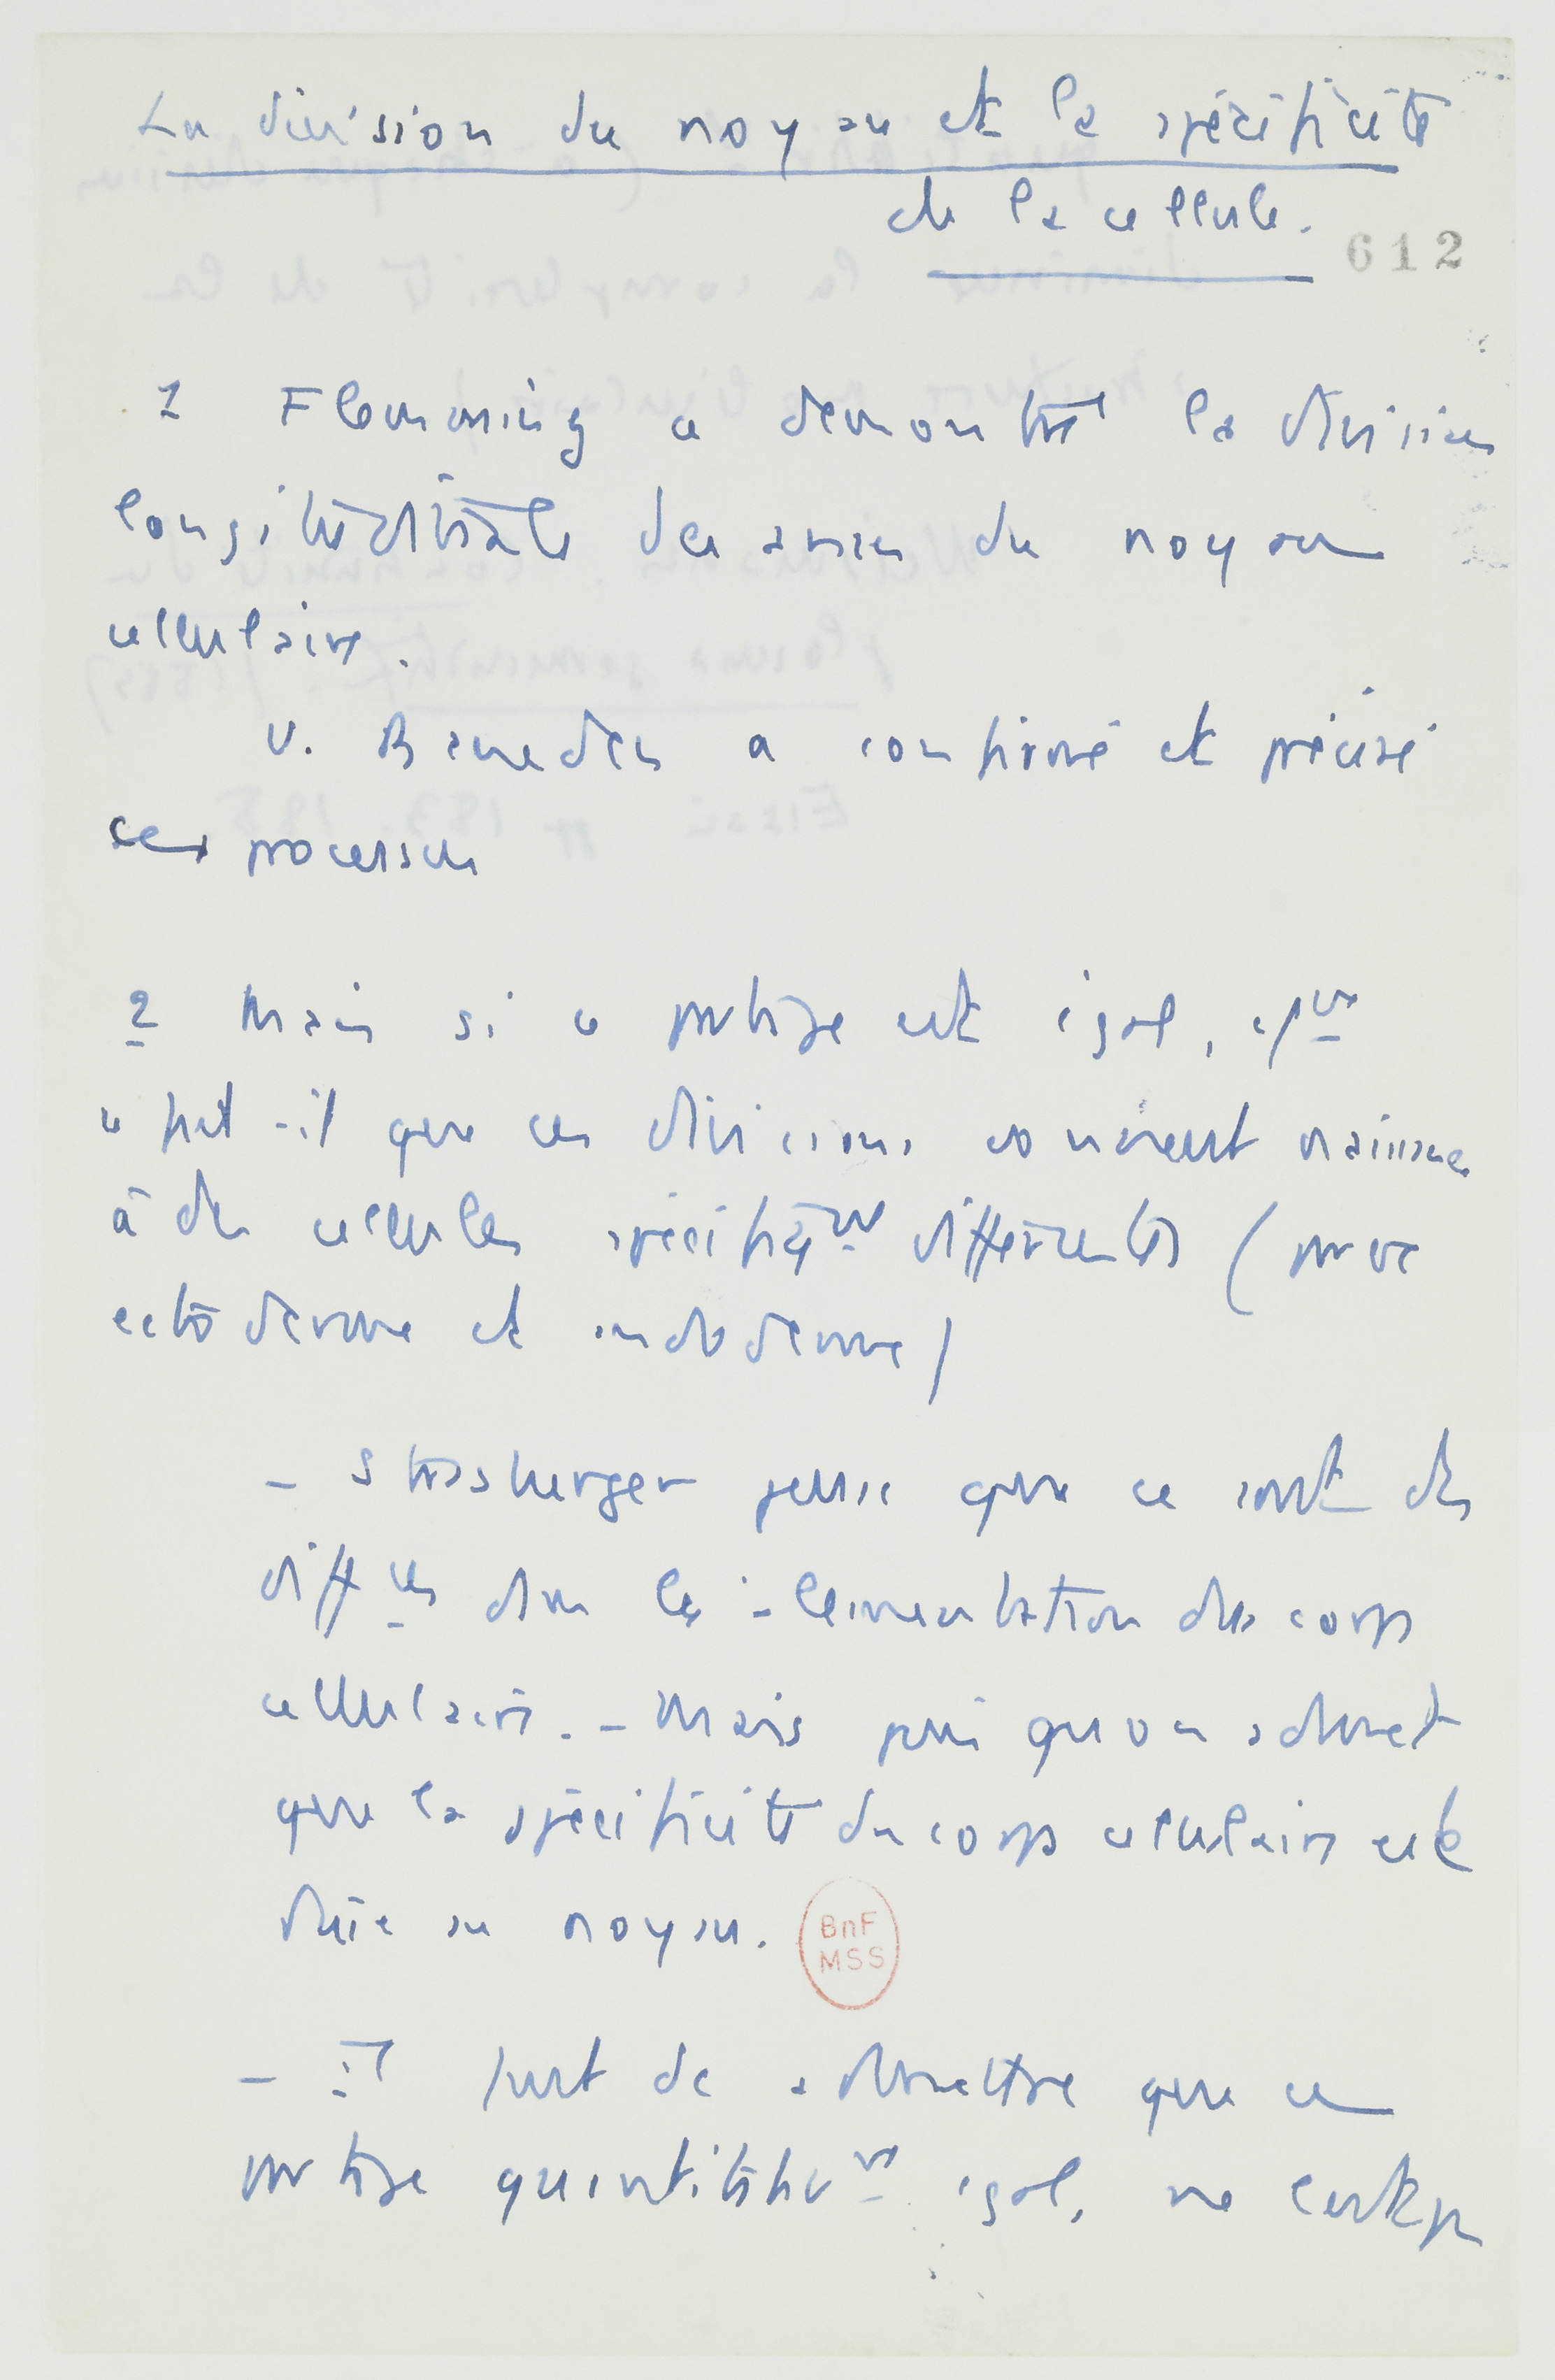 La division du noyau et la spécificité
de la cellule.
612
1 Flemming a démontré la division
longitudinale des anses du noyau
cellulaire.
V. Beneden a confirmé et précisé
ces processus
2 Mais si ce partage est égal,
se fait-il que ces divisions donnent naissance
à des cellules spécifiqnt différentes (
ectoderme et endoderme)
- Strasburger pense que ce sont des
diffces dans l'alimentation des corps
cellulaires. - Mais puisqu'on admet
que la spécificité du corps cellulaire est
due au noyau.
BnF
MSS
- il faut de admettre que ce
partage quantitativt égal, ne l'est pas